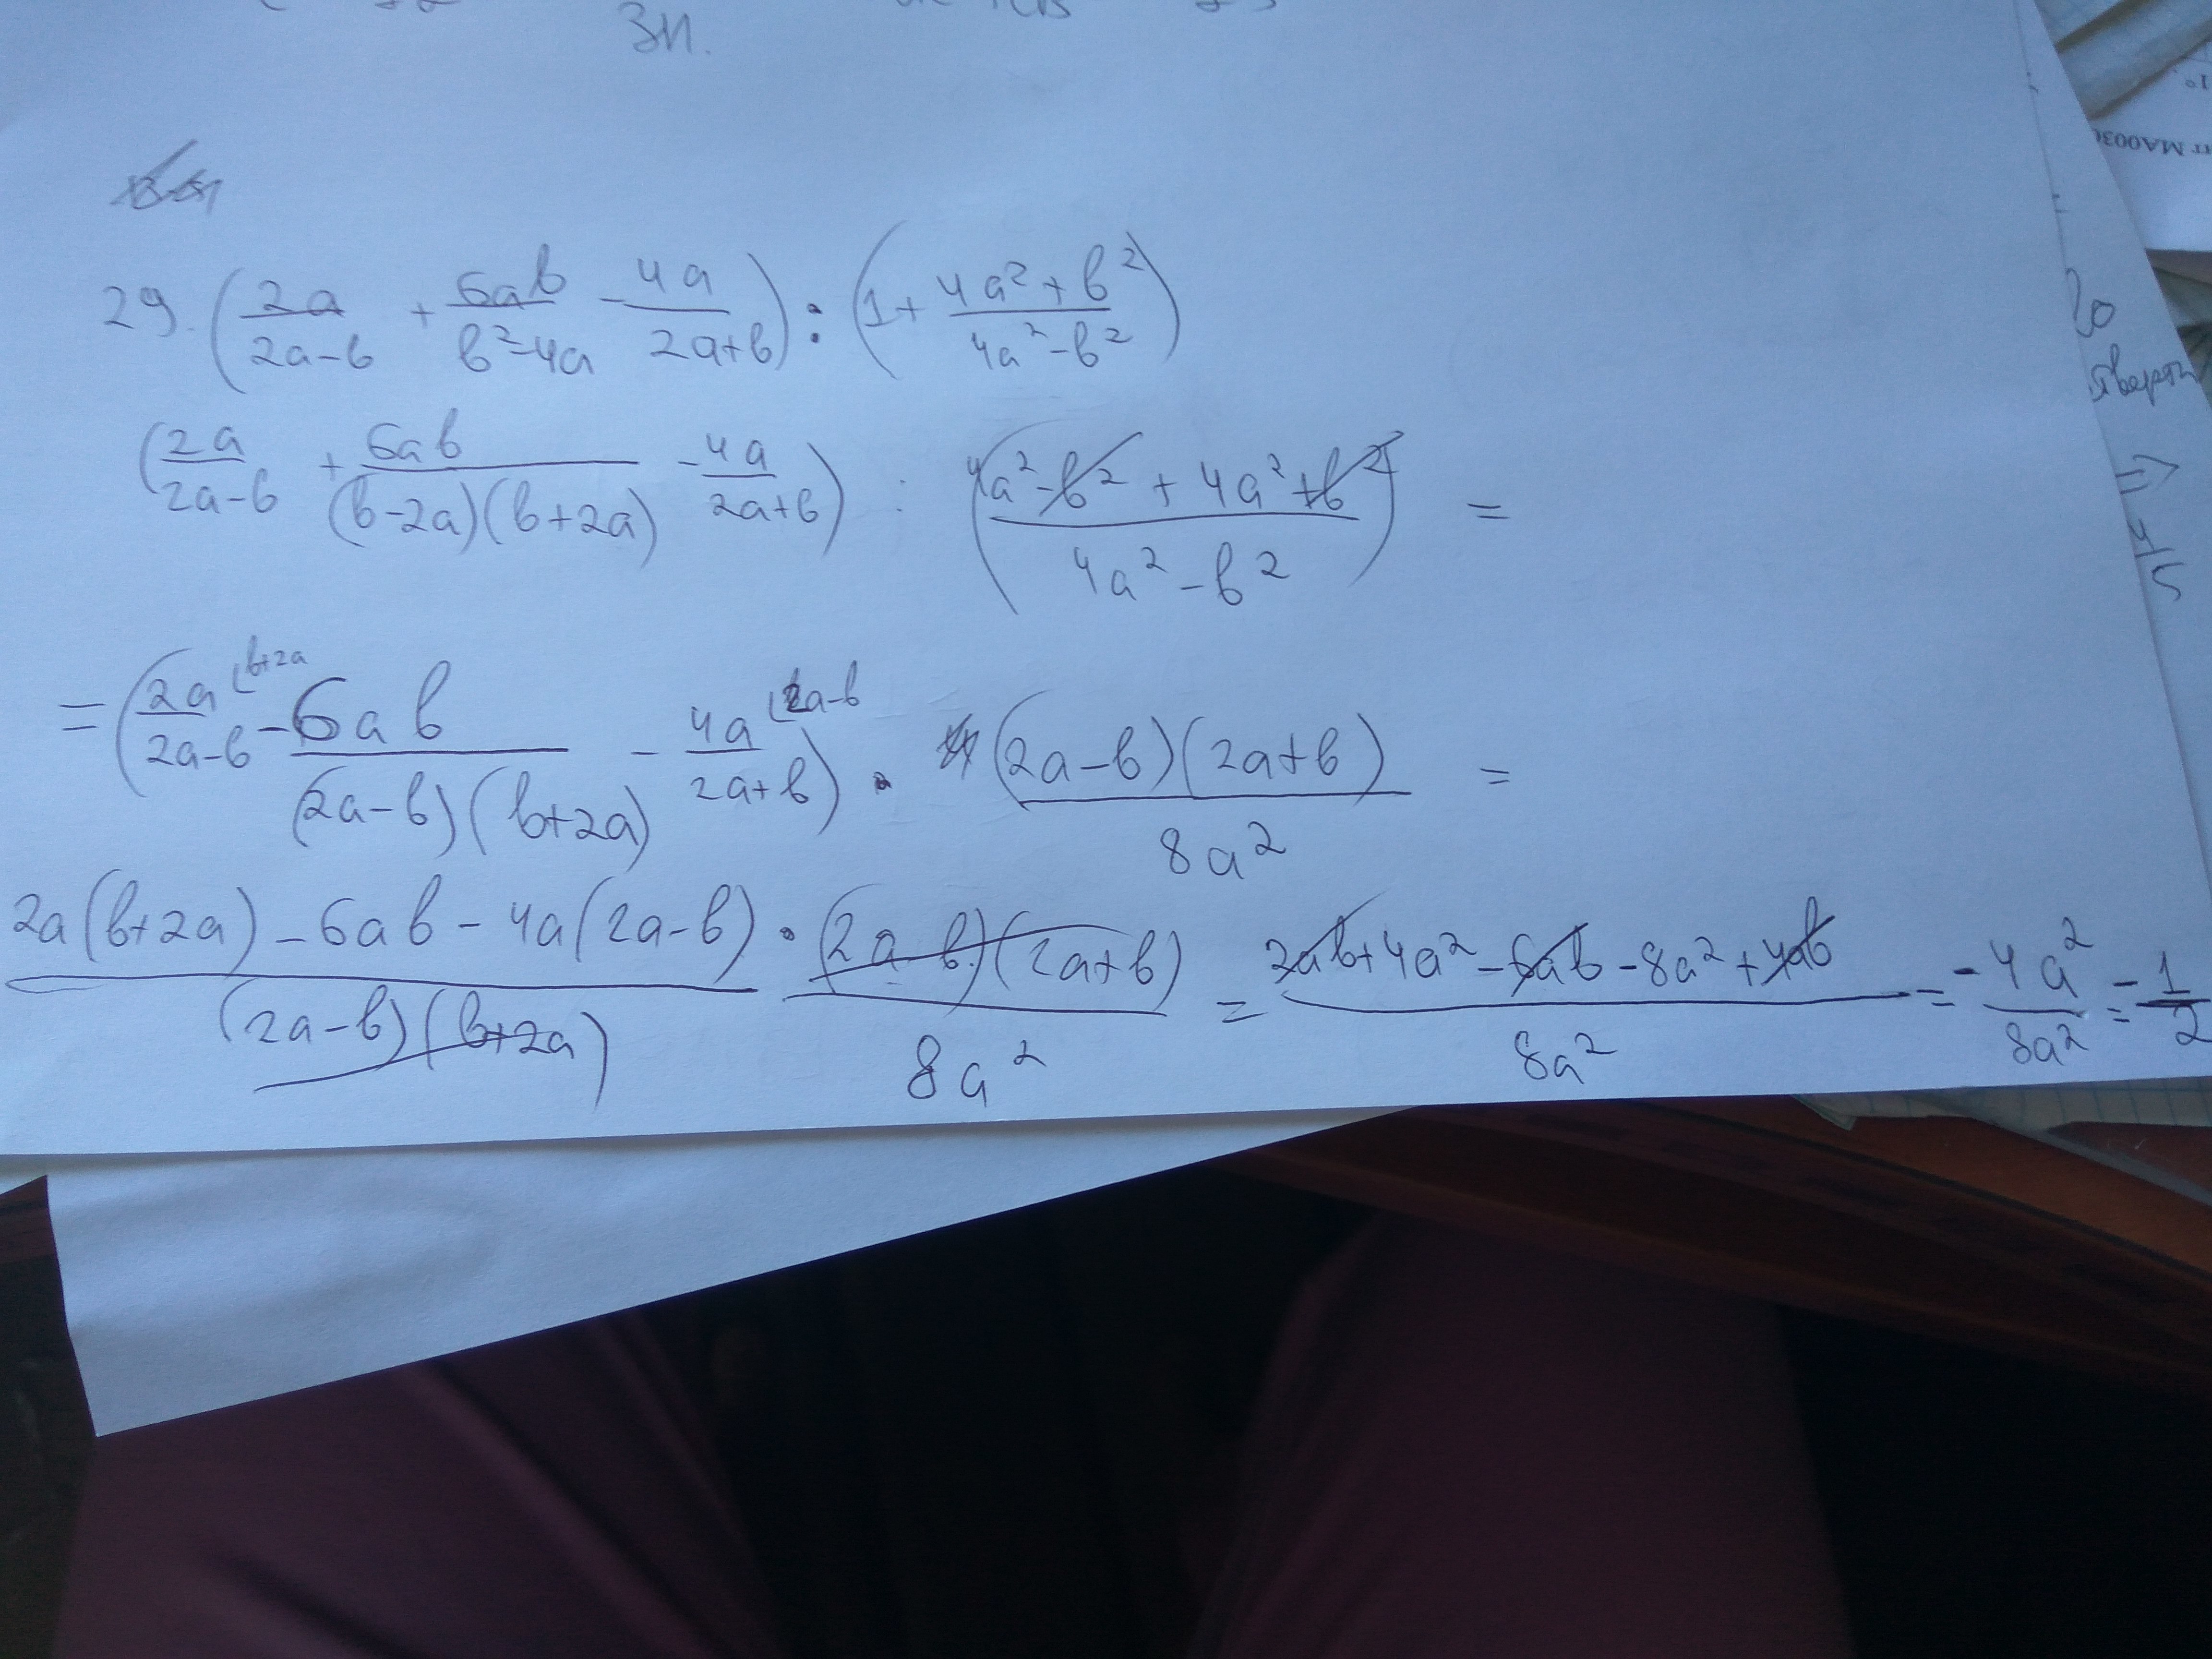 3п.
29. (2a/(2a-b) + 6ab/(b²-4a) - 4a/(2a+b)) : (1 + (4a²+b²)/(4a²-b²))
(2a/(2a-b) + 6ab/((b-2a)(b+2a)) - 4a/(2a+b)) : ((4a²-b²+4a²+b²)/(4a²-b²)) =
= (2a/(2a-b) (b+2a - 6ab/((2a-b)(b+2a)) - 4a/(2a+b) (2a-b) · (2a-b)(2a+b)/8a² =
(2a(b+2a)-6ab-4a(2a-b))/((2a-b)(b+2a)) · (2a-b)(2a+b)/8a² = (2ab+4a²-6ab-8a²+4ab)/8a² = -4a²/8a² = -1/2
=>
4/5
1°